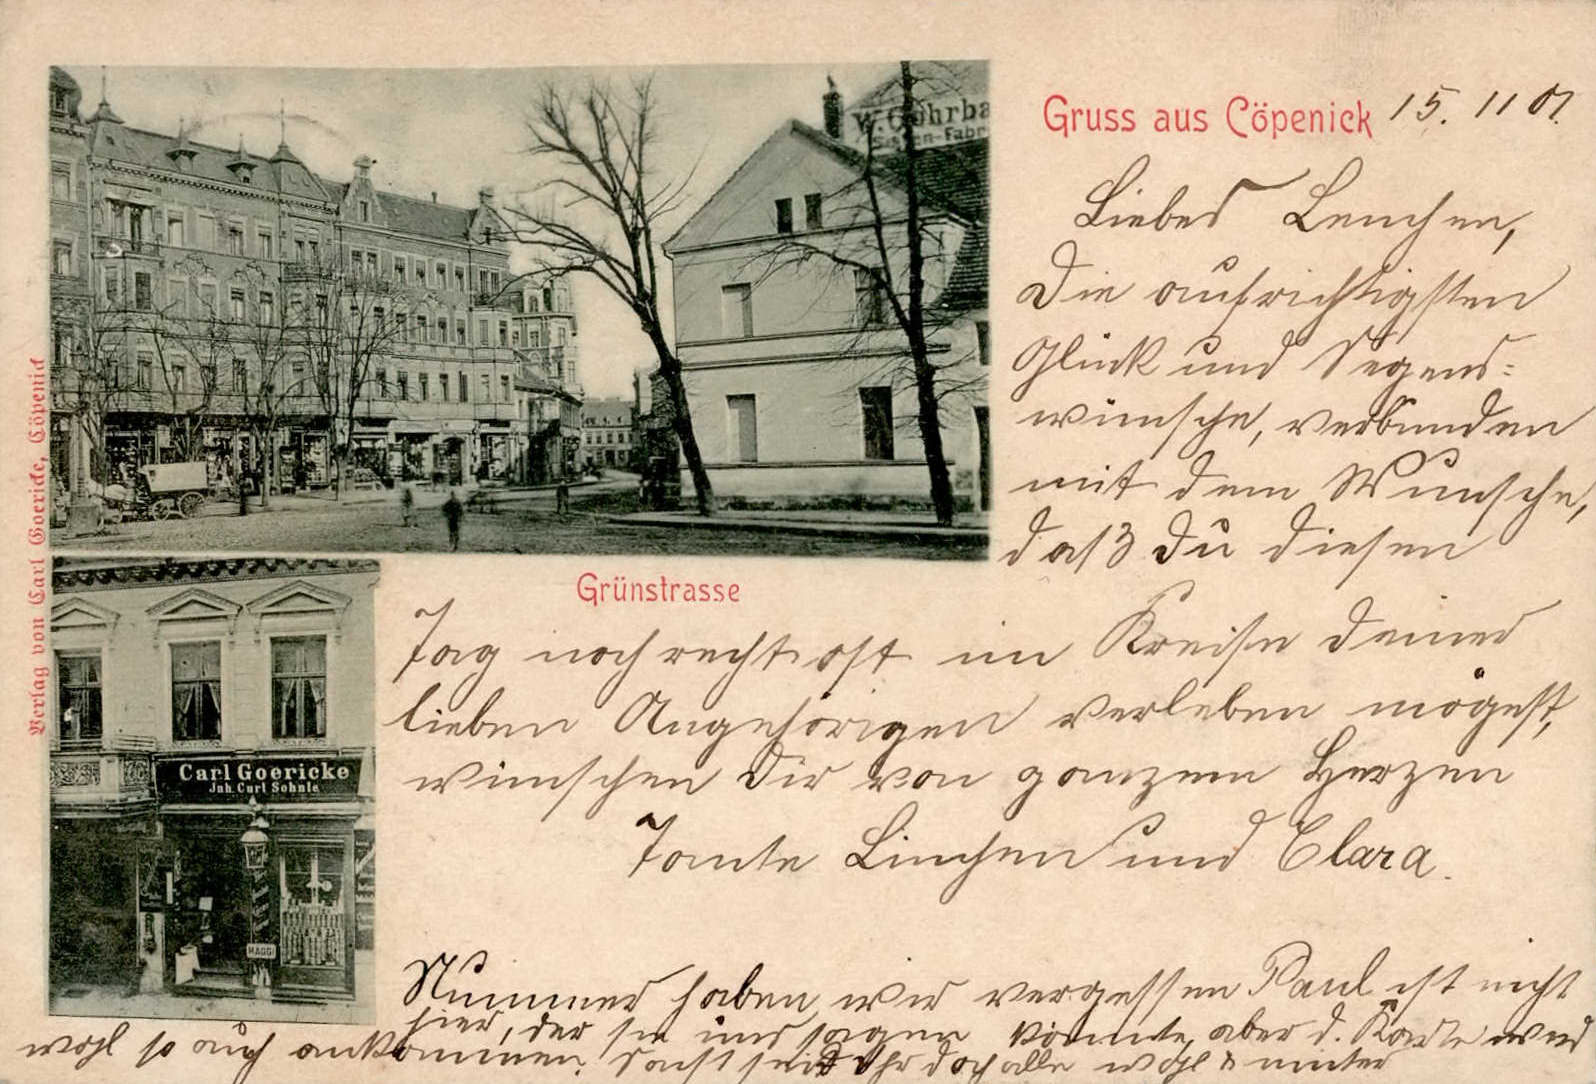 Gruss aus Cöpenick 15. 11 01.
Liebes Lenchen,
Die aufrichtigsten
Glück und Segens-
wünsche, verbunden
mit dem Wunsche,
daß Du diesen
Tag noch recht oft im Kreise deiner
lieben Angehörigen verleben mögest,
wünschen Dir von ganzem Herzen
Tante Linchen und Clara.
Nummer haben wir vergessen Paul ist nicht
hier, der sie uns sagen könnte, aber d. Karte wird
wohl so auch ankommen. Sonst seid Ihr doch alle wohl & munter
Grünstrasse
W. Göhrba
n-Fabr
Carl Goericke
Jnh. Curl Sohnle
MAGGI
Verlag von Carl Goericke, Cöpenick